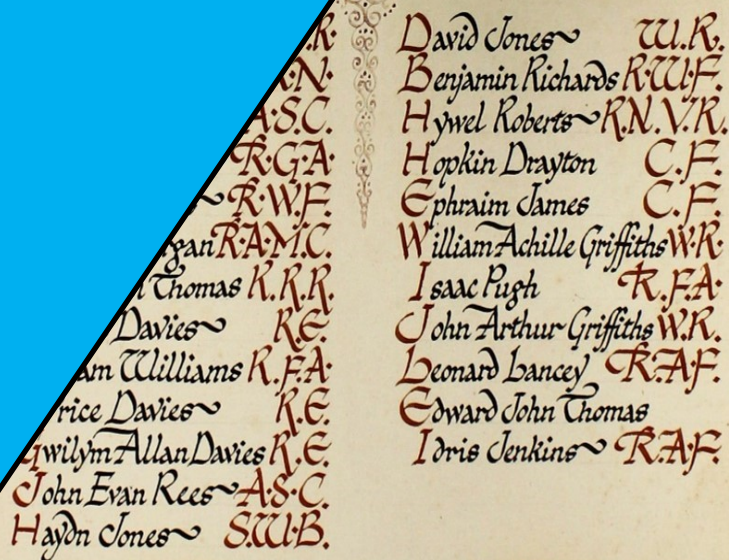 R.
R.N.
A.S.C.
R.G.A.
R.W.F.
R.A.M.C.
Thomas R.R.R.
Davies R.E.
Williams R.F.A.
Davies R.E.
Gwilym Allan Davies R.E.
John Evan Rees A.S.C.
Haydn Jones S.W.B.
David Jones W.R.
Benjamin Richards R.W.F.
Hywel Roberts R.N.V.R.
Hopkin Drayton C.F.
Ephraim James C.F.
William Achille Griffiths W.R.
Isaac Pugh R.F.A.
John Arthur Griffiths W.R.
Leonard Lancey R.A.F.
Edward John Thomas
Idris Jenkins R.A.F.